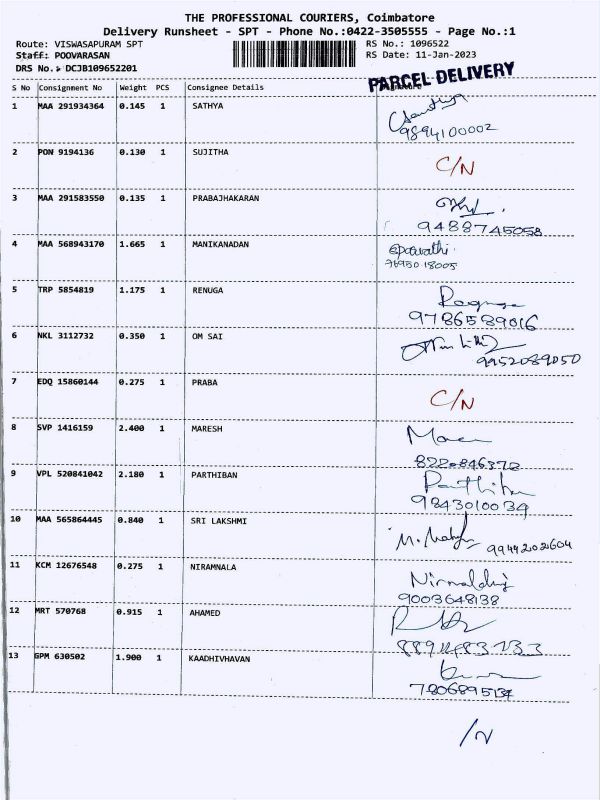 THE PROFESSIONAL COURIERS, Coimbatore
Delivery Runsheet - SPT - Phone No.:0422-3505555 - Page No.:1
Route: VISWASAPURAM SPT RS No.: 1096522
Staff: POOVARASAN RS Date: 11-Jan-2023
DRS No.: DCJB109652201
PARCEL DELIVERY
S No Consignment No Weight PCS Consignee Details
1 MAA 291934364 0.145 1 SATHYA
9894100002
2 PON 9194136 0.130 1 SUJITHA C/N
3 MAA 291583550 0.135 1 PRABAJHAKARAN
9488745058
4 MAA 568943170 1.665 1 MANIKANADAN
5 TRP 5854819 1.175 1 RENUGA
9786589016
6 NKL 3112732 0.350 1 OM SAI
9952089050
7 EDQ 15860144 0.275 1 PRABA C/N
8 SVP 1416159 2.400 1 MARESH
9 VPL 520841042 2.180 1 PARTHIBAN Parthiban
9843010034
10 MAA 565864445 0.840 1 SRI LAKSHMI
9944202604
11 KCM 12676548 0.275 1 NIRAMNALA
9003648138
12 MRT 570768 0.915 1 AHAMED
13 GPM 630502 1.900 1 KAADHIVHAVAN
7806895134
/N